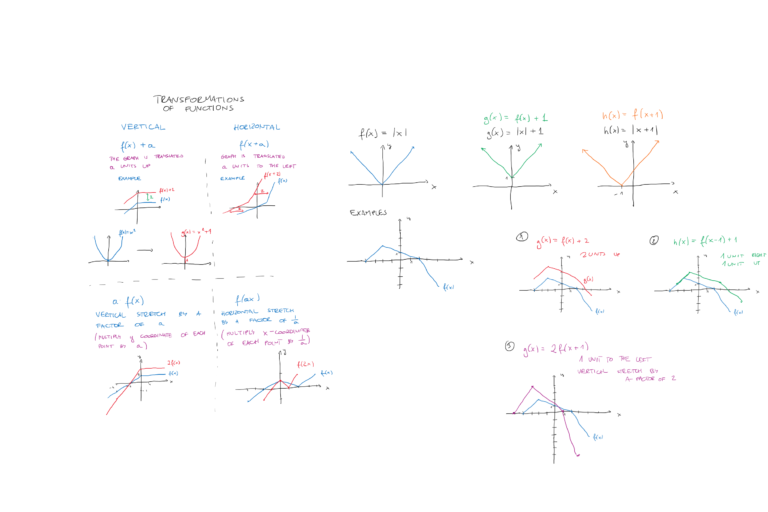 TRANSFORMATIONS
OF FUNCTIONS
VERTICAL
f(x) + a
THE GRAPH IS TRANSLATED
a UNITS UP
EXAMPLE
f(x)
HORIZONTAL
f(x+a)
GRAPH IS TRANSLATED
a UNITS TO THE LEFT
EXAMPLE
f(x)
a f(x)
VERTICAL STRETCH BY A
FACTOR OF a
(MULTIPLY y COORDINATE OF EACH
POINT BY a)
2f(x)
f(x)
x
f(ax)
HORIZONTAL STRETCH
BY A FACTOR OF 1/a
(MULTIPLY x-COORDINATE
OF EACH POINT BY 1/a)
y
f(2x)
f(x)
x
f(x) = |x|
y
x
g(x) = f(x) + 1
g(x) = |x| + 1
y
x
h(x) = f(x+1)
h(x) = |x+1|
y
-1
x
EXAMPLES
x
f(x)
1 g(x) = f(x) + 2
2 UNITS UP
g(x)
x
f(x)
2 h(x) = f(x-1) + 1
1 UNIT RIGHT
1 UNIT UP
x
f(x)
3 g(x) = 2f(x+1)
1 UNIT TO THE LEFT
VERTICAL STRETCH BY
A FACTOR OF 2
x
f(x)